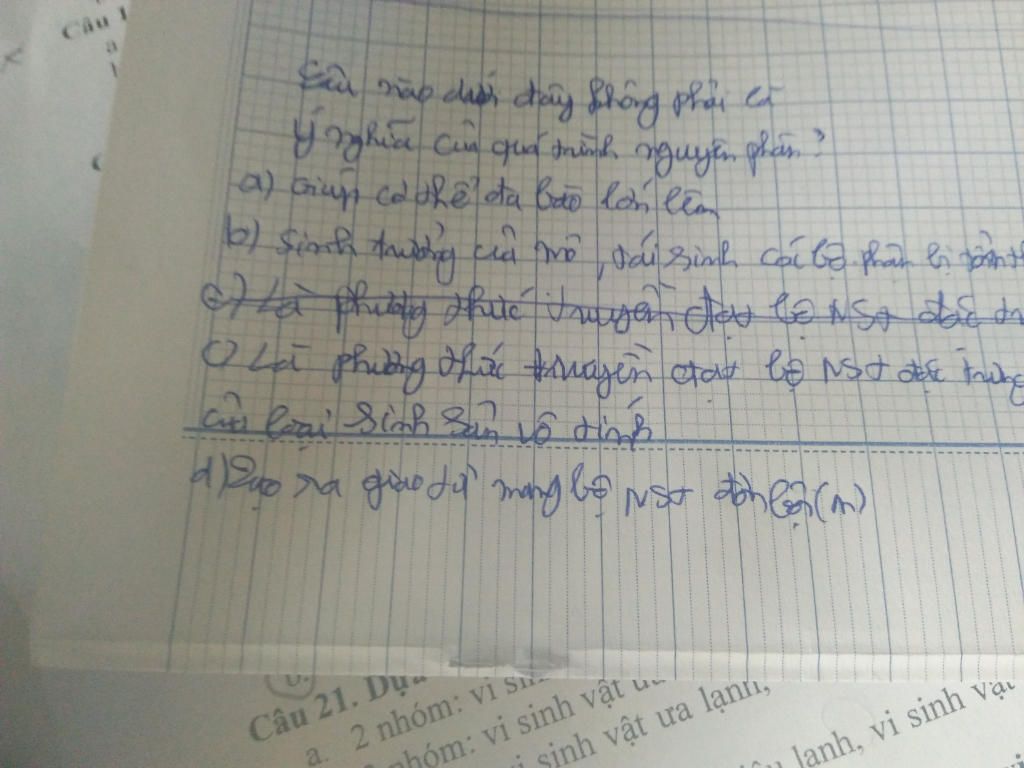 Câu 1
a
Câu nào dưới đây không phải là
ý nghĩa của quá trình nguyên phân?
a) Giúp cơ thể đa bào lớn lên
b) Sinh trưởng của mô, tái sinh các bộ phận bị tổn th
c) Là phương thức truyền đạt bộ NST đặc tr
c) Là phương thức truyền đạt bộ NST đặc trưng
của loài sinh sản vô tính
d) Tạo ra giao tử mang bộ NST đơn bội (n)
Câu 21. Dựa
a. 2 nhóm: vi sinh vật ưa
nhóm: vi sinh vật ưa lạnh,
lạnh, vi sinh vật